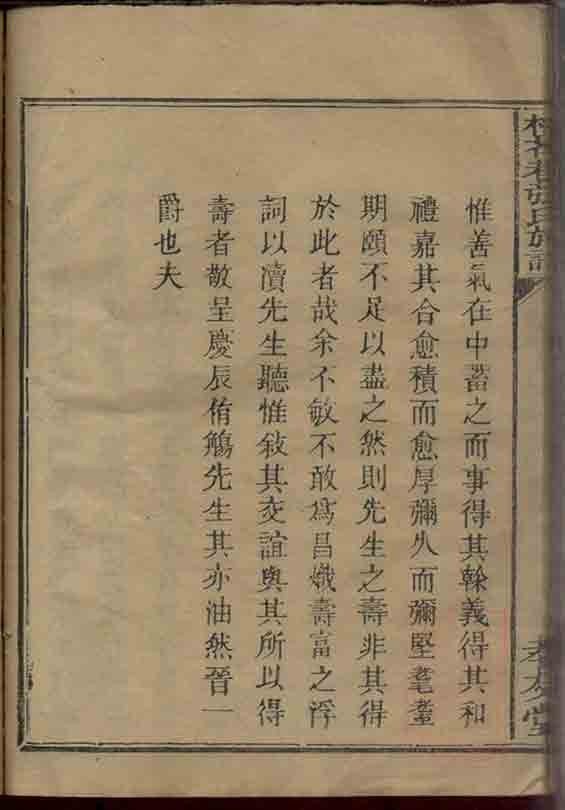 惟善氣在中蓄之而事得其榦義得其和
禮嘉其合愈積而愈厚彌久而彌堅耄耋
期頤不足以盡之然則先生之壽非其得
於此者哉余不敏不敢爲昌熾壽富之浮
詞以瀆先生聽惟敍其交誼與其所以得
壽者敬呈慶辰侑觴先生其亦油然晉一
爵也夫
孝友堂